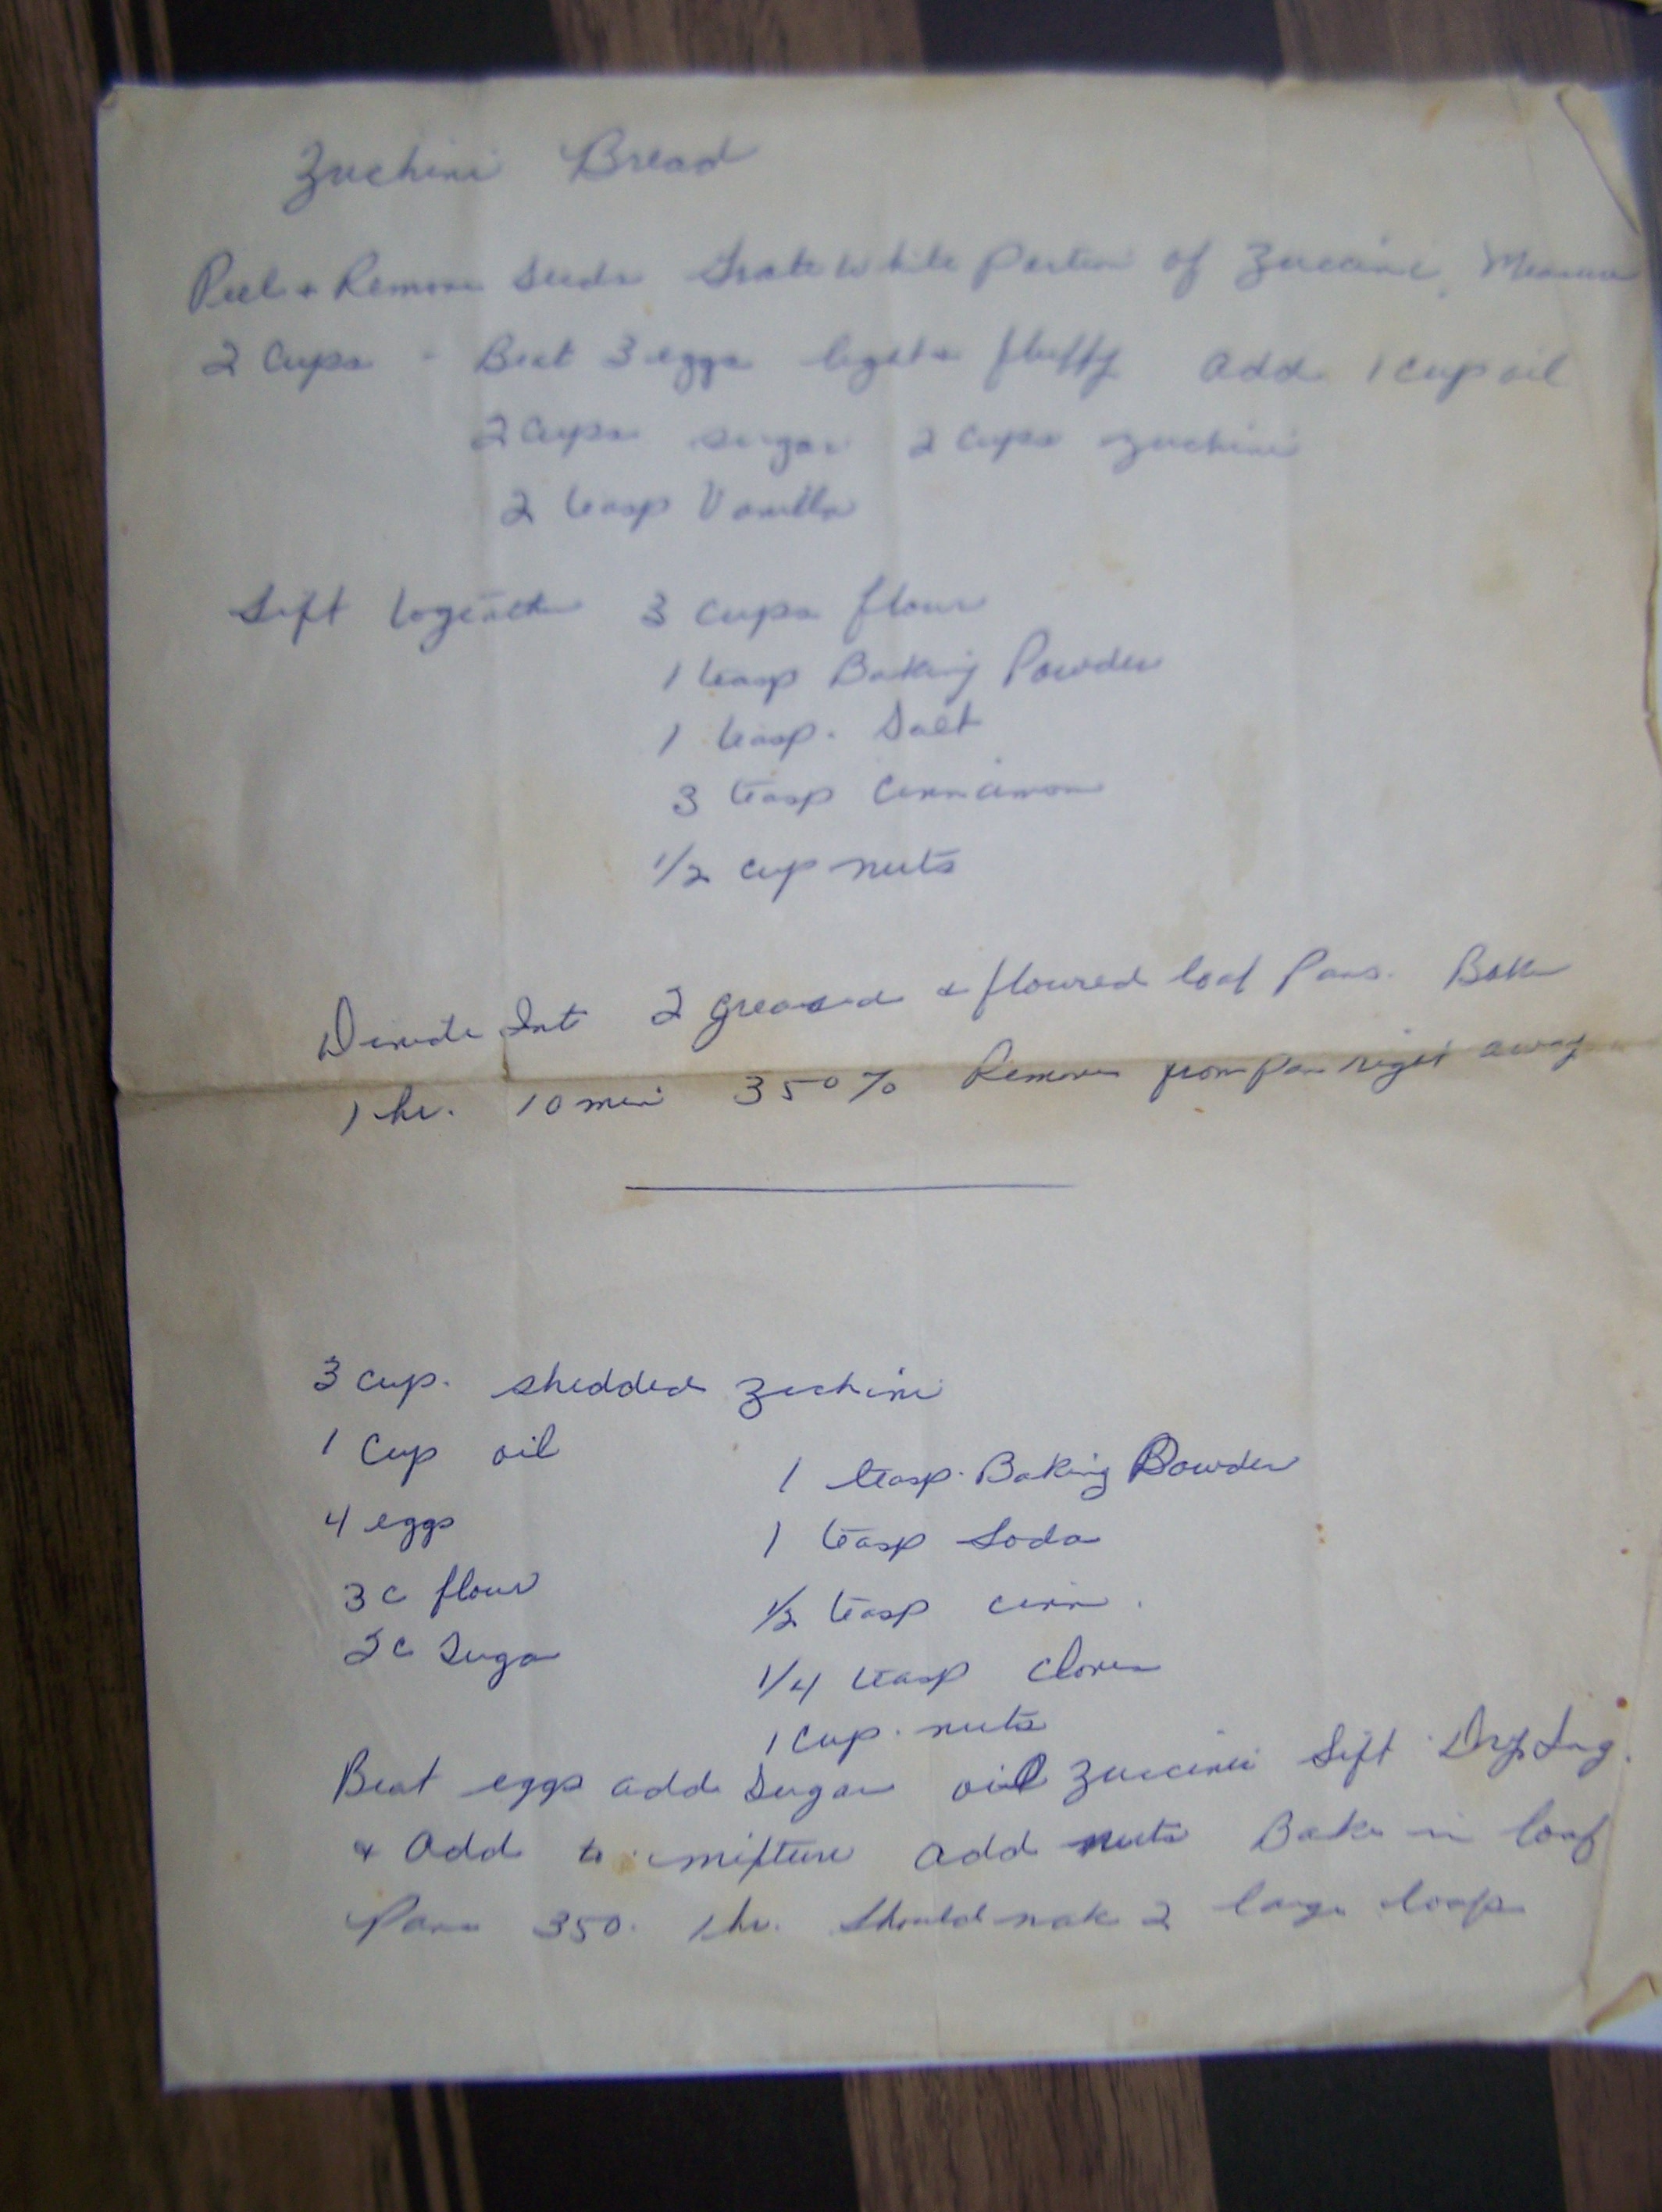 Zuchini Bread
Peel & Remove Seeds Grate White Portion of Zuccini, Measure
2 Cups - Beat 3 eggs light & fluffy add 1 cup oil
2 cups sugar 2 cups zuchini
2 teasp Vanilla
Sift together 3 cups flour
1 teasp Baking Powder
1 teasp. Salt
3 teasp Cinnamon
1/2 cup nuts
Divide Into 2 greased & floured loaf Pans. Bake
1 hr. 10 min 350% Remove from pan right away
3 cup. shedded zuchini
1 Cup oil
4 eggs
3 c flour
2 c Sugar
1 teasp. Baking Powder
1 teasp Soda
1/2 teasp cinn.
1/4 teasp cloves
1 Cup. nuts
Beat eggs add Sugar oil zuccini Sift Dry Ing.
& Add to mixture add nuts Bake in loaf
Pans 350. 1 hr. Should mak 2 large loafs